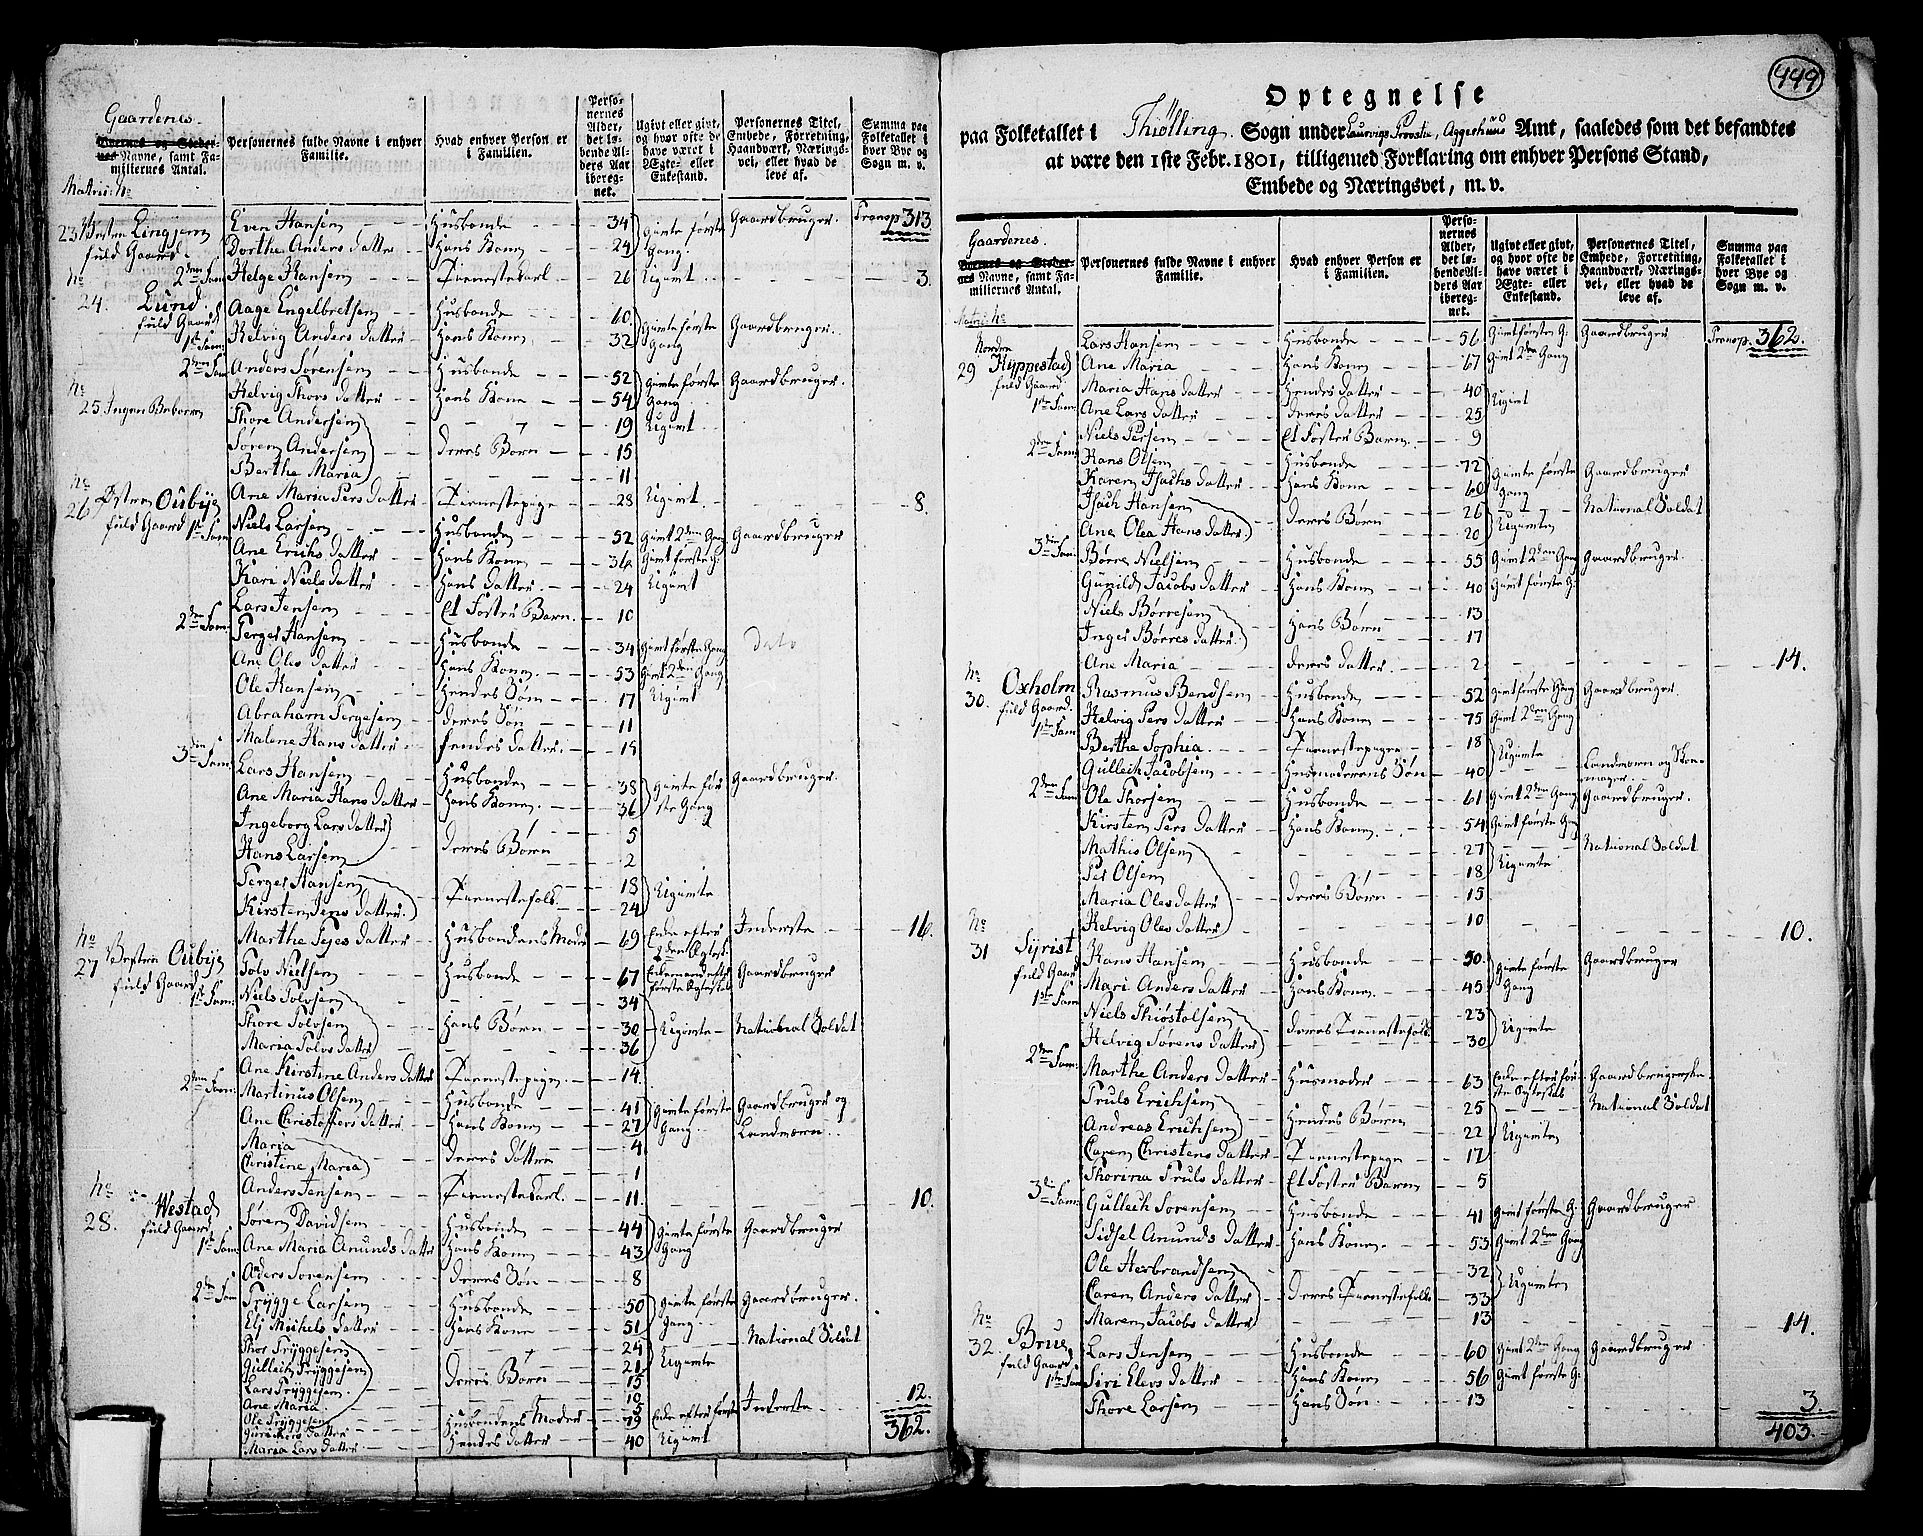 Gaardenes
Byernes og Stedernes Navne, samt Familiernes Antal.
Personernes fulde Navne i enhver Familie.
Hvad enhver Person er i Familien.
Personernes Alder, det løbende Alders Aar iberegnet.
Ugivt eller givt, og hvor ofte de have været i Ægte- eller Enkestand.
Personernes Titel, Embede, Forretning, Haandværk, Næringsvei, eller hvad de leve af.
Summa paa Folketallet i hver Bye og Sogn m. v.
Matric: No
23 Even Hansen Husbonde 34 Gimte første Gang Gaardbruger. Transp 313
fuld Gaard. Dorthe Anders datter Hans Kone 24
2den Fam Helge Hansen Tieneste Karl. 26 Ugimt 3.
No 24. Lund fuld Gaard 1ste Fam: Aage Engelbretsen Husbonde 60 Gimte første Gang Gaardbruger.
Helvig Anders datter Hans Kone 32
2den Fam Anders Sørensen Husbonde 52 Gimte første Gang Gaardbruger.
Helvig Thors datter Hans Kone 54
No 25 Ingen Beboere Thore Andersen 19 Ugimt
Søren Andersen Deres Børn 15
Berthe Maria 11
Ane Maria Pers datter Tienestepige 28 Ugimt 8.
No 26 Østre Oubye fuld Gaard 1ste Fam Niels Larsen Husbonde 52 Gimt 2den Gang Gaardbruger
Ane Erichs datter Hans Kone 36 Gimt første G:
Kari Niels datter Hans datter 24 Ugimt
Lars Jensen Et Foster Barn. 10
2den Fam: Terger Hansen Husbonde 34 Gimt første Gang Dato
Ane Oles datter Hans Kone 53 Gimt 2den Gang
Ole Hansen Hendes Søn 17 Ugimt
Abraham Tergesen Deres Søn 11
Malene Hans datter Hendes datter. 15
3die Fam: Lars Hansen Husbonde 38 Gimte første Gang Gaardbruger.
Ane Maria Hans datter Hans Kone. 36
Ingeborg Lars datter Deres Børn 5
Hans Larsen 2
Terger Hansen Tienestefolk. 18 Ugimte
Kirsten Jens datter. 24
Marthe Tyes datter Husbondens Moder 69 Enke efter 2den Ægtest: Inderste 16.
No 27 Vestre Oubye fuld Gaard 1ste Fam. Tolv Nielsen Husbonde 67 Enkemand efter første Ægteskab Gaardbruger
Niels Tolvsen 34
Thore Tolvsen Hans Børn 30 Ugimte National Soldat
Maria Tolvs datter 36
Ane Kirstine Anders datter Tienestepige. 14.
2den Fam: Martinus Olsen Husbonde 41 Gimte første Gang Gaardbruger og Landværn
Ane Christoffers datter Hans Kone 27
Maria Deres døttre 4
Christine Maria 1
Anders Jensen Tieneste Karl. 11. 10.
No 28. Westad fuld Gaard 1ste Fam: Søren Davidsen Husbonde 44 Gimte første Gang Gaardbruger
Ane Maria Amunds datter Hans Kone 43
Aders Sørensen Deres Søn 8
2den Fam Trygge Larsen Husbonde 50 Gimte første Gang Gaardbruger.
Elj Michels datter Hans Kone 51
Thor Tryggesen 24 Ugimte National Soldat
Gulleich Tryggesen Deres Børn 21
Lars Tryggesen. 15
Ane Maria 10
Ole Tryggesen 5
Husbondens Moder 79 Enke efter første Inderste 12.
Maria Lars datter Hendes datter 40 Ugimt 362.
449
Optegnelse
paa Folketallet i Thiølling Sogn under Laurvigs Provstie, Aggershuus Amt, saaledes som det befandtes
at være den 1ste Febr. 1801, tilligemed Forklaring om enhver Persons Stand,
Embede og Næringsvei, m. v.
Gaardenes.
Byernes og Stedernes Navne, samt Familiernes Antal.
Personernes fulde Navne i enhver Familie.
Hvad enhver Person er i Familien.
Personernes Alder, det løbende Alders Aar iberegnet.
Ugivt eller givt, og hvor ofte de have været i Ægte- eller Enkestand.
Personernes Titel, Embede, Forretning, Haandværk, Næringsvei, eller hvad de leve af.
Summa paa Folketallet i hver Bye og Sogn m. v.
Matric: No
Nordre Lars Hansen Husbonde 56 Gimt første G: Gaardbruger Transp. 362.
29 Klyppestad fuld Gaard. Ane Maria Hans Kone 67 Gimt 2den Gang
1ste Fam: Maria Hans datter Hendes datter 40 Ugimt
Ane Lars datter Deres datter 25
Niels Persen Et Foster Barn. 9
2den Fam Hans Olsen Husbonde 72 Gimte første Gang Gaardbruger
Karen Isachs datter Hans Kone 60
Isach Hansen Deres Børn 26 Ugimte National Soldat
Ane Olea Hans datter 20
3die Fam: Børre Nielsen Husbonde 55 Gimt 2den Gang Gaardbruger.
Gunild Jacobs datter Hans Kone 40 Gimt første G:
Niels Børresen Hans Børn 13
Inger Børres datter. 17
Ane Maria Deres datter 2 14.
No 30. Oxholm fuld Gaard. 1ste Fam Rasmus Bendsen Husbonde 52 Gimt første Gang Gaardbruger.
Helvig Pers datter Hans Kone 75 Gimt 2den Gang
Berthe Sophia. Tienestepige 18 Ugimte
Gulleich Jacobsen Husmoderens Søn 40 Landværn og Skomager.
2den Fam Ole Thorsen Husbonde 61 Gimt 2den Gang Gaardbruger.
Kirsten Pers datter Hans Kone 54 Gimt første Gang
Mathis Olsen 27 Ugimte National Soldat
Per Olsen 18
Maria Oles datter Deres Børn 15
Helvig Oles datter 10 10.
No 31 Syrist fuld Gaard 1ste Fam Hans Hansen Husbonde 50. Gimte første Gang Gaardbruger
Mari Anders datter Hans Kone. 45
Niels Thiøstolsen Deres Tienestefolk 23 Ugimte
Helvig Sørens datter 30
2den Fam: Marthe Anders datter Husmoder 63 Enke efter første Ægteskab Gaardbrugerske
Truls Erichsen Hendes Børn 25 Ugimte National Soldat
Andreas Erichsen 22
Caren Christens datter Tienestepige 17
Thorina Truls datter Et Foster Barn 5
3die Fam: Gulleich Sørensen Husbonde 41 Gimt første G: Gaardbruger
Sidsel Amunds datter Hans Kone. 53 Gimt 2den Gang
Ole Herbrandsen 32 Ugimte
Caren Anders datter Deres Tienestefolk 33
Maren Jacobs datter 13 14.
No 32. Brue fuld Gaard 1ste Fam Lars Jensen Husbonde 60 Gimt 2den Gang Gaardbruger
Siri Elers datter Hans Kone 56 Gimt første G:
Thore Larsen Hans Søn. 13 3.
403.